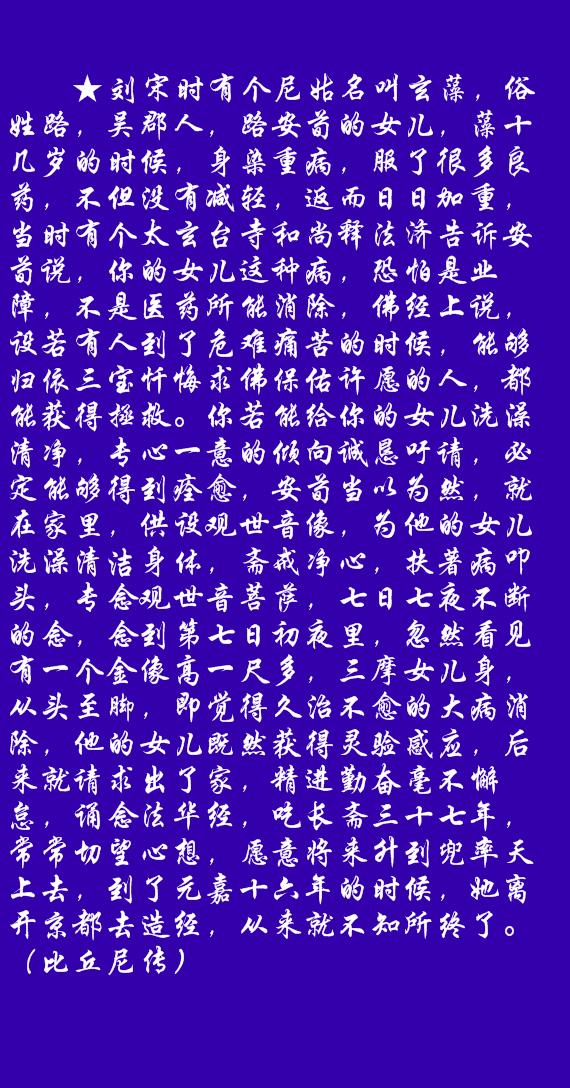 ★刘宋时有个尼姑名叫玄藻，俗
姓路，吴郡人，路安苟的女儿，藻十
几岁的时候，身染重病，服了很多良
药，不但没有减轻，返而日日加重，
当时有个太玄台寺和尚释法济告诉安
苟说，你的女儿这种病，恐怕是业
障，不是医药所能消除，佛经上说，
设若有人到了危难痛苦的时候，能够
归依三宝忏悔求佛保佑许愿的人，都
能获得拯救。你若能给你的女儿洗澡
清净，专心一意的倾向诚恳吁请，必
定能够得到痊愈，安苟当以为然，就
在家里，供设观世音像，为他的女儿
洗澡清洁身体，斋戒净心，扶著病叩
头，专念观世音菩萨，七日七夜不断
的念，念到第七日初夜里，忽然看见
有一个金像高一尺多，三摩女儿身，
从头至脚，即觉得久治不愈的大病消
除，他的女儿既然获得灵验感应，后
来就请求出了家，精进勤奋毫不懈
怠，诵念法华经，吃长斋三十七年，
常常切望心想，愿意将来升到兜率天
上去，到了元嘉十六年的时候，她离
开京都去造经，从来就不知所终了。
（比丘尼传）